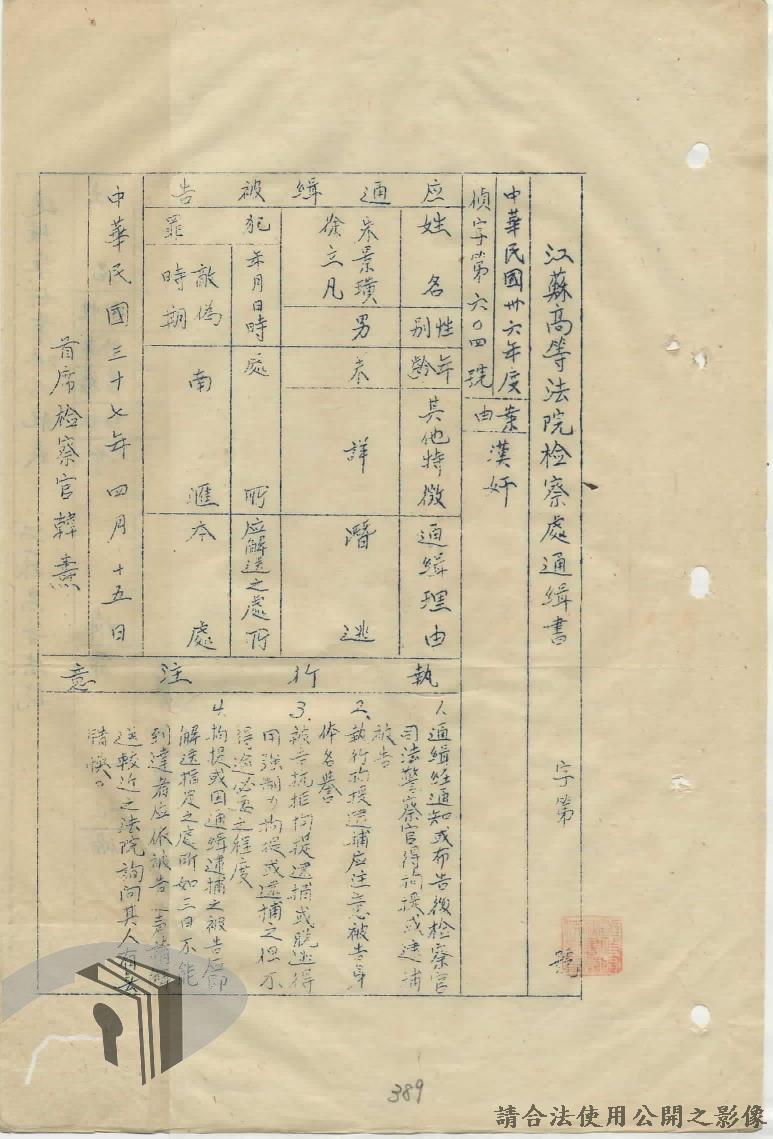 江蘇高等法院檢察處通緝書 字第 號
中華民國卅六年度
偵字第六〇四號
案由
漢奸
应通緝被告
姓名
性別
年齡
其他特徵
通緝理由
朱景璜
徐立凡
男
未詳
潛逃
犯罪
年月日時
處所
应解送之處所
敵偽時期
南滙
本處
中華民國三十七年四月十五日
首席檢察官韓燾
執行注意
1.通緝経通知或布告後檢察官
司法警察官得拘提或逮捕
被告
2.執行拘提逮捕应注意被告身
体名譽
3.被告抗拒拘提逮捕或脱逃得
用強制力拘提或逮捕之但不
得逾必要之程度
4.拘提或因通緝逮捕之被告应即
解送指定之處所如三日不能
到達者应依被告之声請
送較近之法院詢問其人有無
錯悞。
389
請合法使用公開之影像